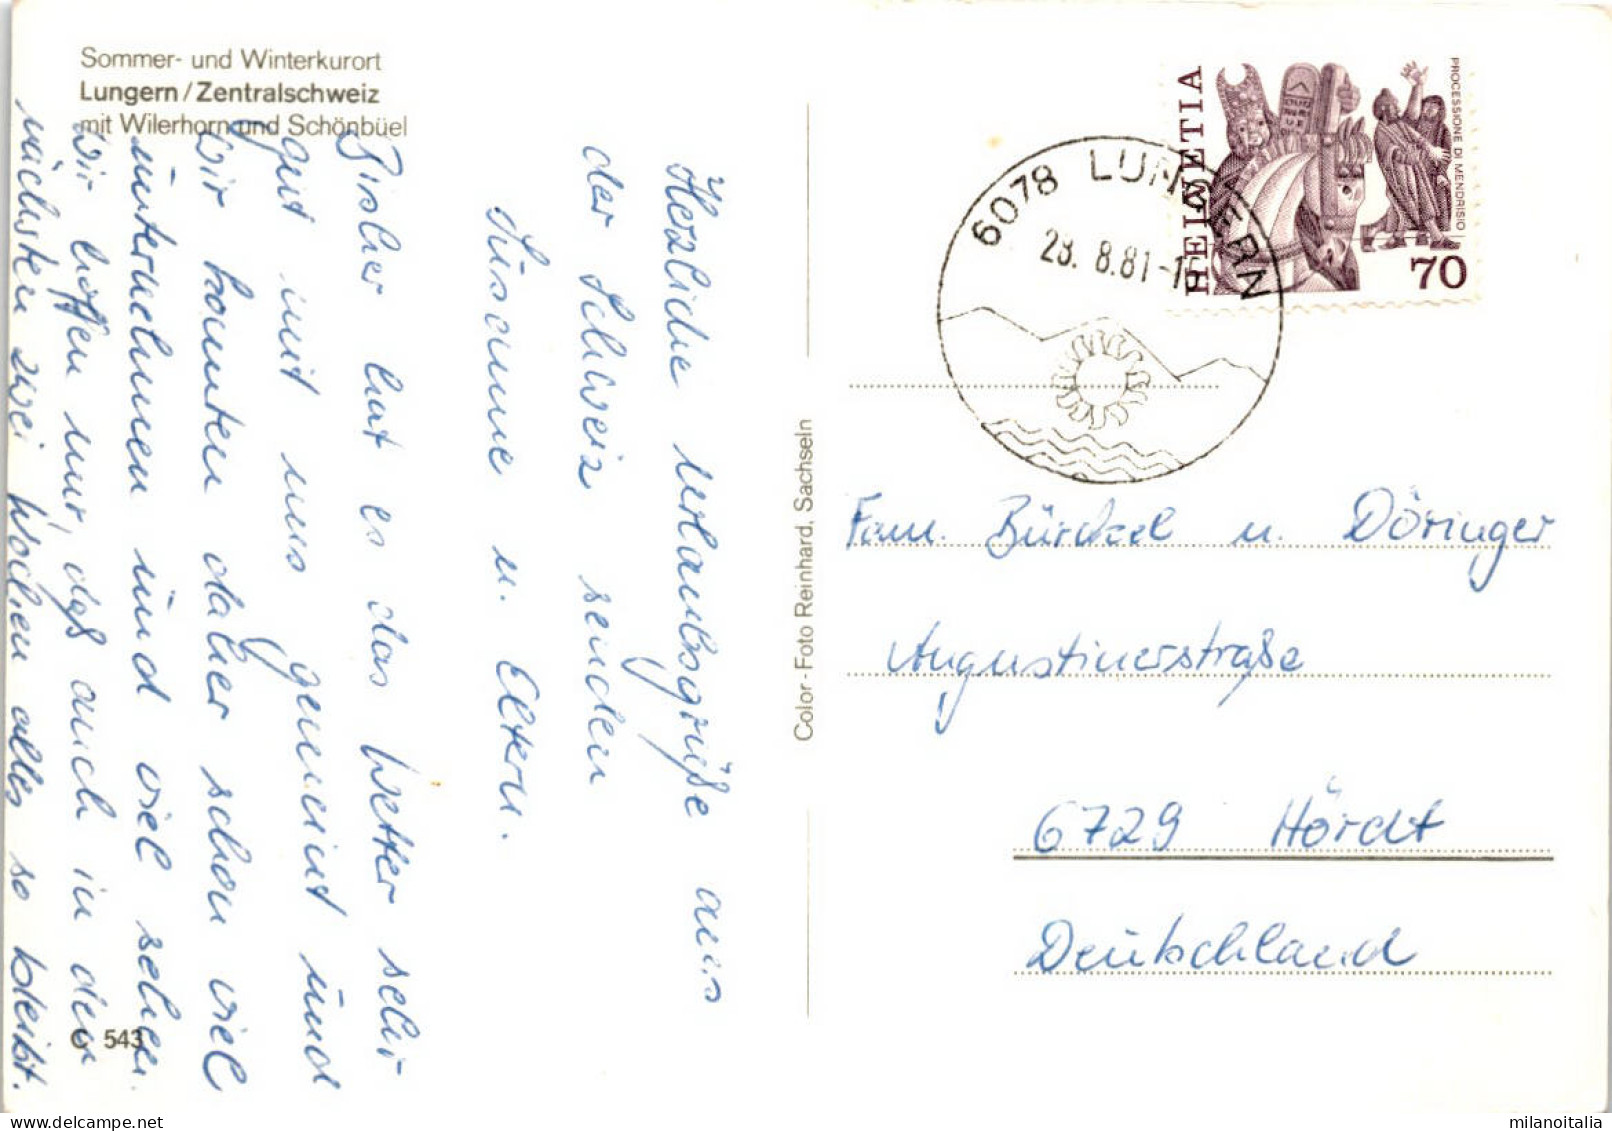 Sommer- und Winterkurort
Lungern/Zentralschweiz
mit Wilerhorn und Schönbüel
Herzliche Urlaubsgrüße aus
der Schweiz senden
Susanne u. Eltern.
Bisher hat es das Wetter sehr
gut mit uns gemeint und
wir konnten daher schon viel
unternehmen und viel sehen.
Wir hoffen nur, daß auch in den
nächsten zwei Wochen alles so bleibt.
C 543
Color-Foto Reinhard, Sachseln
HELVETIA
PROCESSIONE DI MENDRISIO
70
6078 LUNGERN
28. 8.81-15
Fam. Bürckel u. Döringer
Augustinerstraße
6729 Hördt
Deutschland
milanoitalia